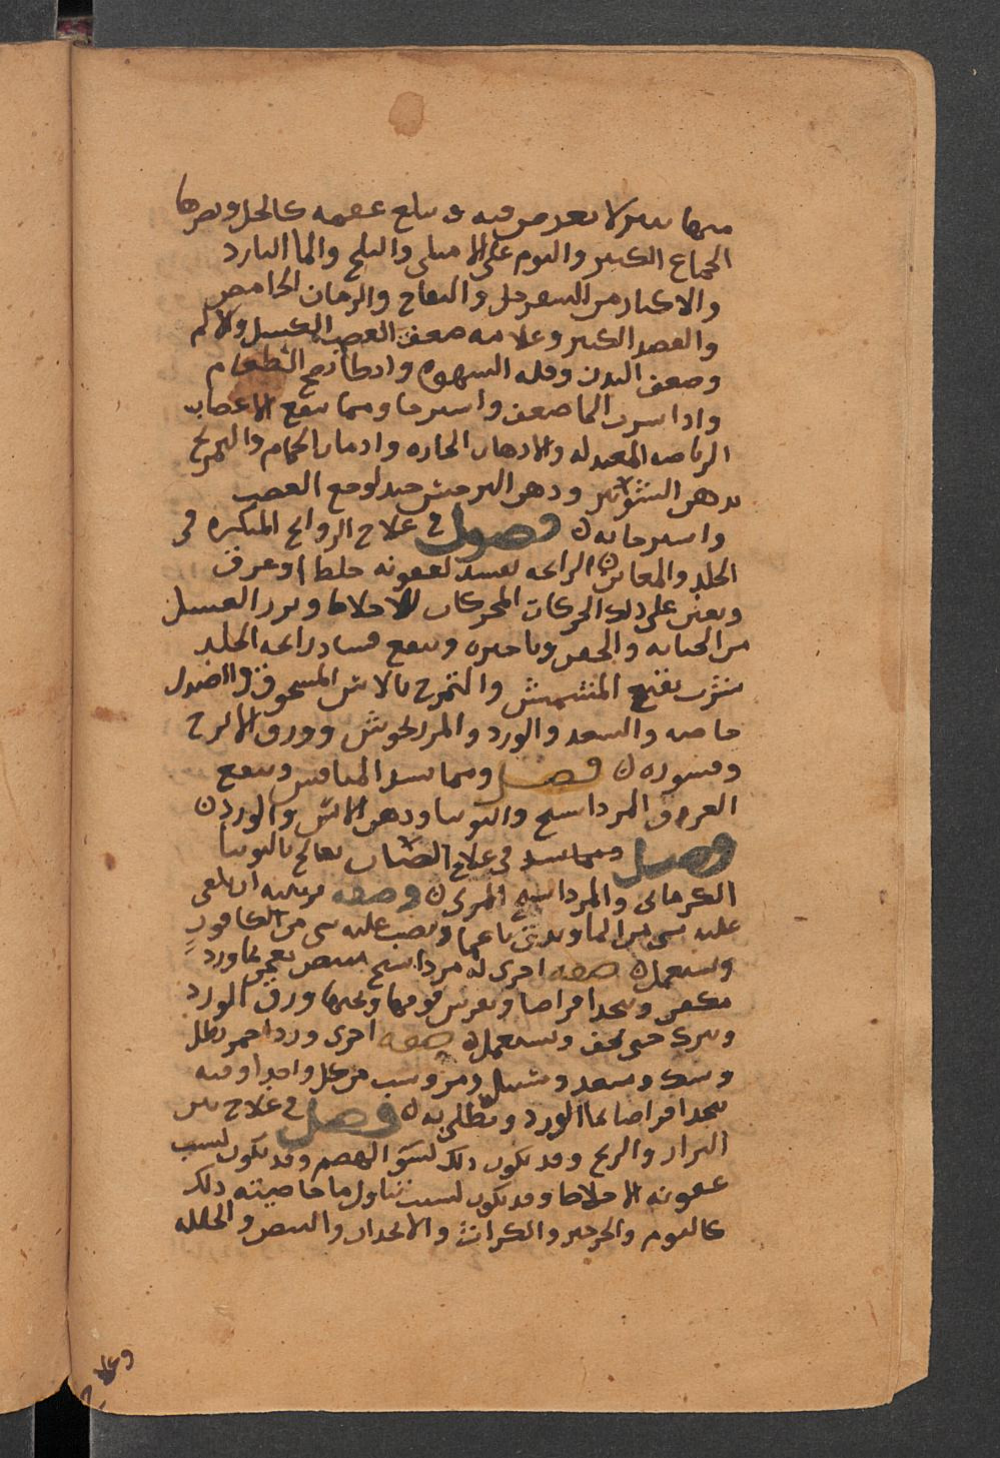 منها شي لا تعرض فيه و يبلع عقيبه كالخل ويضرها
الجماع الكثير والنوم على الامتلى والثلج والماء البارد
والاكثار من السفرجل والتفاح والرمان الحامض
والفصد الكثير وعلامه ضعف العصب الكسل والالم
وضعف البدن وقله الشهوه وابطا نضج الطعام
واذا شرب الما ضعف واسترخا ومما ينفع الاعصاب
الرياضه المعتدله والادهان الحاره وادمان الحمام والتمريخ
بدهن الشونيز ودهن النرجس جيد لوجع العصب
واسترخايه ن فصل في علاج الروايح المنكره في
الجلد والمغابن ن الرايحه تفسد لعفونه خلط او عرق
ويعين على ذلك الحركات المحركات للاخلاط وترك الغسل
من الجنابه والحيض وتاخيره وينفع فساد رايحه الجلد
شرب نقيع المشمش والتمرخ بالاس المسحوق والصندل
خاصه والسعد والورد والمرزنجوش وورق الاترج
وقشوره ن فصل ومما يسد المنافس ويمنع
العرق المرداسنج والتوتيا ودهن الاس والورد ن
فصل ومما يسد في علاج الصنان يعالج بالتوتيا
الكرماني والمرداسنج المربى ن وصفه تربيته ان يلقى
عليه شي من الما ويدق ناعما ويصب عليه شي من الكافور
ويستعمل ن صفه اخرى له مرداسنج مبيض يعجن بماورد
مكفر ويتخذ اقراصا ويفرش فوقها وتحتها ورق الورد
ويترك حتى يجف ويستعمل ن صفه اخرى ورد احمر
وسك وسعد وسنبل ومر وشب من كل واحد اوقيه
يتخذ اقراصا بماء الورد ويطلى به ن فصل في علاج نتن
البراز والريح وقد يكون ذلك لسوء الهضم وقد يكون لسبب
عفونه الاخلاط وقد يكون لسبب تناول ما خاصيته ذلك
كالثوم والجرجير والكراث والانجدان والبيض والحلبه
وعلاج